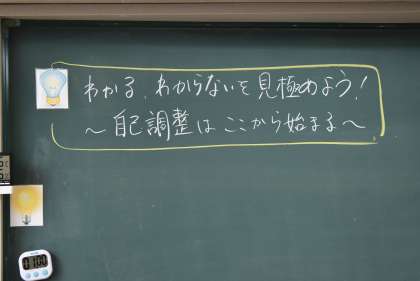 わかる、わからないを見極めよう!
〜自己調整はここから始まる〜